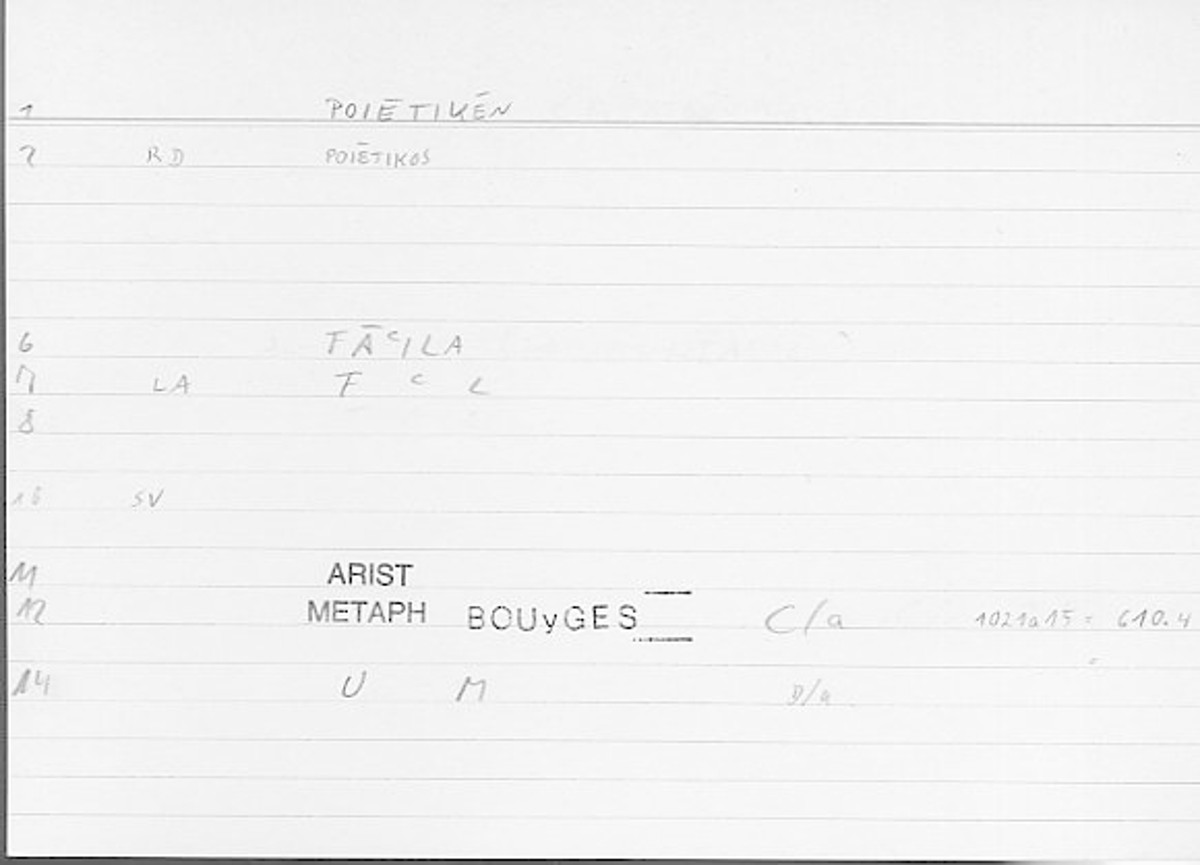 1 POIĒTIKĒN
2 RD POIĒTIKOS
6 FĀʿILA
7 LA F ʿ L
8
10 SV
11 ARIST
12 METAPH BOUyGES C/a 1021a15 = 610.4
14 U M D/a